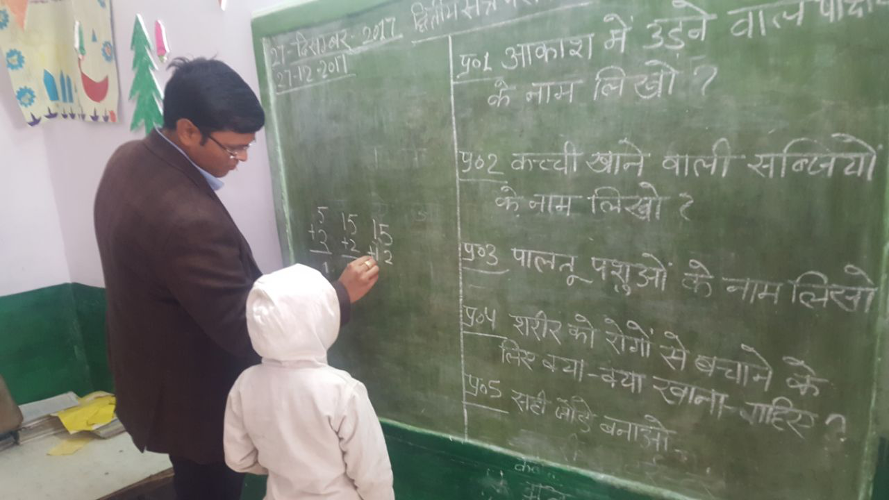 27-दिसम्बर-2017
27-12-2017
द्वितीय सत्र
प्र०1 आकाश में उड़ने वाले
के नाम लिखो ?
प्र०2 कच्ची खाने वाली सब्जियों
के नाम लिखो ?
प्र०3 पालतू पशुओं के नाम लिखो
प्र०4 शरीर को रोगों से बचाने के
लिए क्या-क्या खाना चाहिए ?
प्र०5 सही जोड़े बनाओ
5 15 15
+2 +2 12